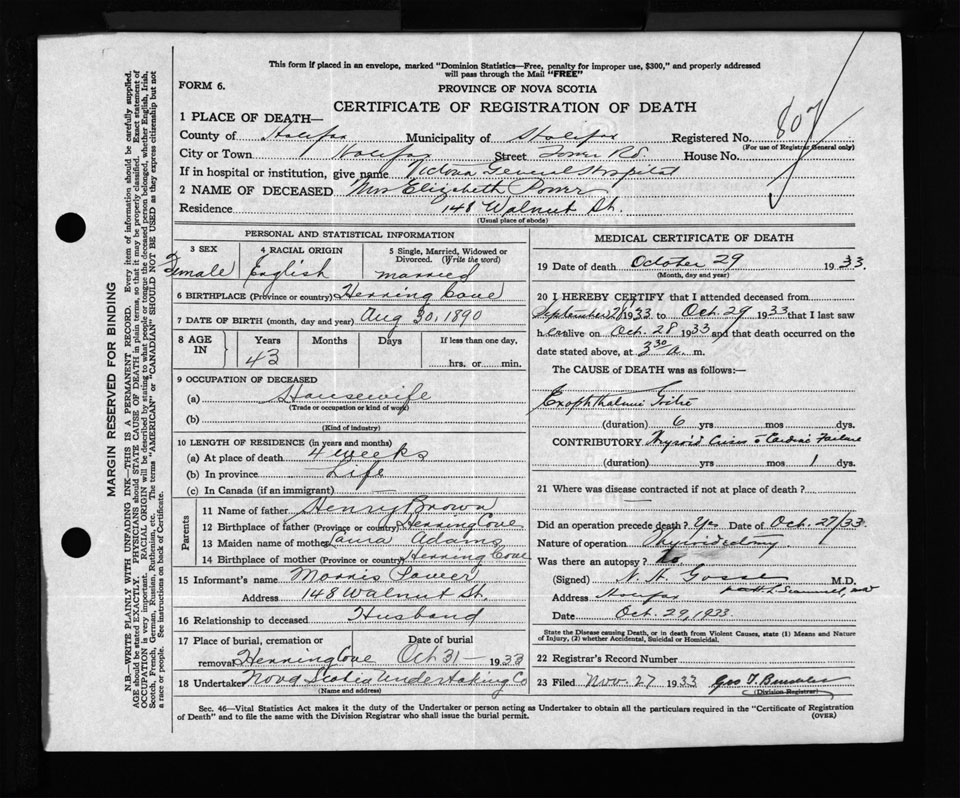 This form if placed in an envelope, marked "Dominion Statistics—Free, penalty for improper use, $300," and properly addressed
will pass through the Mail "FREE"
FORM 6.
PROVINCE OF NOVA SCOTIA
CERTIFICATE OF REGISTRATION OF DEATH
1 PLACE OF DEATH—
County of Halifax Municipality of Halifax Registered No. 807
(For use of Registrar General only)
City or Town Halifax Street Tower Rd. House No.
If in hospital or institution, give name Victoria General Hospital
2 NAME OF DECEASED Mrs Elizabeth Power
Residence 148 Walnut St.
(Usual place of abode)
PERSONAL AND STATISTICAL INFORMATION
3 SEX 4 RACIAL ORIGIN 5 Single, Married, Widowed or Divorced. (Write the word)
Female English married
6 BIRTHPLACE (Province or country) Herring Cove
7 DATE OF BIRTH (month, day and year) Aug 30, 1890
8 AGE IN Years Months Days If less than one day,
43 hrs. or min.
9 OCCUPATION OF DECEASED
(a) Housewife
(Trade or occupation or kind of work)
(b)
(Kind of industry)
10 LENGTH OF RESIDENCE (in years and months)
(a) At place of death 4 weeks
(b) In province Life
(c) In Canada (if an immigrant) —
Parents
11 Name of father Henry Brown
12 Birthplace of father (Province or country) Herring Cove
13 Maiden name of mother Laura Adams
14 Birthplace of mother (Province or country) Herring Cove
15 Informant's name Morris Power
Address 148 Walnut St.
16 Relationship to deceased Husband
17 Place of burial, cremation or removal Herring Cove Date of burial Oct 31 — 1933
18 Undertaker Nova Scotia Undertaking Co
(Name and address)
MEDICAL CERTIFICATE OF DEATH
19 Date of death October 29 1933.
(Month, day and year)
20 I HEREBY CERTIFY that I attended deceased from
September 1933 to Oct. 29 1933 that I last saw
h er alive on Oct. 28 1933 and that death occurred on
date stated above, at 3 30 a. m.
The CAUSE of DEATH was as follows:—
Exophthalmic Goitre
(duration) 6 yrs mos dys.
CONTRIBUTORY Thyroid Crisis Cardiac Failure
(duration) yrs mos 1 dys.
21 Where was disease contracted if not at place of death?
Did an operation precede death? Yes Date of Oct. 27/33.
Nature of operation Thyroidectomy.
Was there an autopsy?
(Signed) N. H. Gosse M.D.
Address Halifax
Date Oct. 29, 1933.
State the Disease causing Death, or in death from Violent Causes, state (1) Means and Nature
of Injury, (2) whether Accidental, Suicidal or Homicidal.
22 Registrar's Record Number
23 Filed Nov. 27 1933 Geo T.
(Division Registrar)
Sec. 46—Vital Statistics Act makes it the duty of the Undertaker or person acting as Undertaker to obtain all the particulars required in the "Certificate of Registration
of Death" and to file the same with the Division Registrar who shall issue the burial permit. (OVER)
MARGIN RESERVED FOR BINDING
N.B.—WRITE PLAINLY WITH UNFADING INK—THIS IS A PERMANENT RECORD. Every item of information should be carefully supplied.
AGE should be stated EXACTLY. PHYSICIANS should STATE CAUSE OF DEATH in plain terms, so that it may be properly classified. Exact statement of
OCCUPATION is very important. RACIAL ORIGIN will be described by stating to what people or tongue the deceased person belonged, whether English, Irish,
Scotch, French, German, Russian, Ruthenian, etc. The terms "AMERICAN" or "CANADIAN" SHOULD NOT BE USED as they express citizenship but not
a race or people. See instructions on back of Certificate.